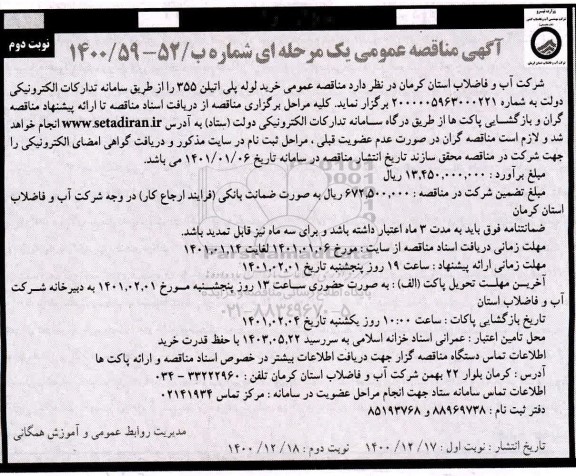 وزارت نیرو
شرکت مهندسی آب و فاضلاب کشور
شرکت آب و فاضلاب استان کرمان
نوبت دوم
آگهی مناقصه عمومی یک مرحله ای شماره ب/۵۲-۵۹/۱۴۰۰
شرکت آب و فاضلاب استان کرمان در نظر دارد مناقصه عمومی خرید لوله پلی اتیلن ۳۵۵ را از طریق سامانه تدارکات الکترونیکی
دولت به شماره ۲۰۰۰۰۰۵۹۶۳۰۰۰۲۲۱ برگزار نماید. کلیه مراحل برگزاری مناقصه از دریافت اسناد مناقصه تا ارائه پیشنهاد مناقصه
گران و بازگشایی پاکت ها از طریق درگاه سامانه تدارکات الکترونیکی دولت (ستاد) به آدرس www.setadiran.ir انجام خواهد
شد و لازم است مناقصه گران در صورت عدم عضویت قبلی ، مراحل ثبت نام در سایت مذکور و دریافت گواهی امضای الکترونیکی را
جهت شرکت در مناقصه محقق سازند تاریخ انتشار مناقصه در سامانه تاریخ ۱۴۰۱/۰۱/۰۶ می باشد.
مبلغ برآورد : ۱۳,۴۵۰,۰۰۰,۰۰۰ ریال
مبلغ تضمین شرکت در مناقصه : ۶۷۲,۵۰۰,۰۰۰ ریال به صورت ضمانت بانکی (فرایند ارجاع کار) در وجه شرکت آب و فاضلاب
استان کرمان
ضمانتنامه فوق باید به مدت ۳ ماه اعتبار داشته باشد و برای سه ماه نیز قابل تمدید باشد.
مهلت زمانی دریافت اسناد مناقصه از سایت : مورخ ۱۴۰۱.۰۱.۰۶ لغایت ۱۴۰۱.۰۱.۱۴
مهلت زمانی ارائه پیشنهاد : ساعت ۱۹ روز پنجشنبه تاریخ ۱۴۰۱.۰۲.۰۱
آخرین مهلت تحویل پاکت (الف) : به صورت حضوری ساعت ۱۳ روز پنجشنبه مورخ ۱۴۰۱.۰۲.۰۱ به دبیرخانه شرکت
آب و فاضلاب استان
تاریخ بازگشایی پاکات : ساعت ۱۰:۰۰ روز یکشنبه تاریخ ۱۴۰۱.۰۲.۰۴
محل تامین اعتبار : عمرانی اسناد خزانه اسلامی به سررسید ۱۴۰۳.۰۵.۲۲ با حفظ قدرت خرید
اطلاعات تماس دستگاه مناقصه گزار جهت دریافت اطلاعات بیشتر در خصوص اسناد مناقصه و ارائه پاکت ها
آدرس : کرمان بلوار ۲۲ بهمن شرکت آب و فاضلاب استان کرمان تلفن : ۳۳۲۲۲۹۶۰ - ۰۳۴
اطلاعات تماس سامانه ستاد جهت انجام مراحل عضویت در سامانه : مرکز تماس ۰۲۱۴۱۹۳۴
دفتر ثبت نام : ۸۸۹۶۹۷۳۸ و ۸۵۱۹۳۷۶۸
مدیریت روابط عمومی و آموزش همگانی
تاریخ انتشار : نوبت اول : ۱۴۰۰/۱۲/۱۷ نوبت دوم : ۱۴۰۰/۱۲/۱۸